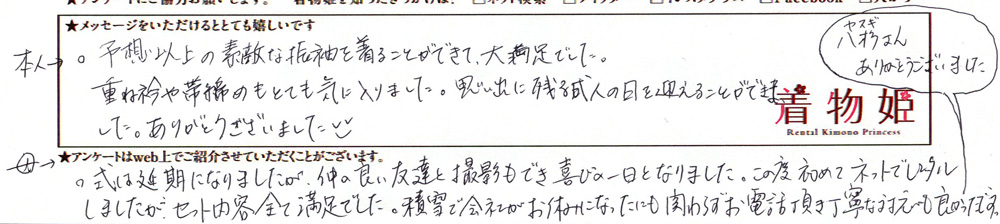 ★メッセージをいただけるととても嬉しいです
本人→ 。予想以上の素敵な振袖を着ることができて、大満足でした。
重ね衿や帯締めもとても気に入りました。思い出に残る成人の日を迎えることができま
した。ありがとうございました
ヤスギ
八杉さん
ありがとうございました
着物姫
Rental Kimono Princess
★アンケートはweb上でご紹介させていただくことがございます。
母→ 。式は延期になりましたが、仲の良い友達と撮影もでき喜びの一日となりました。この度初めてネットでレンタル
しましたが、セット内容全て満足でした。積雪で会社がお休みになったにも関わらずお電話頂き丁寧な対応も良かったです